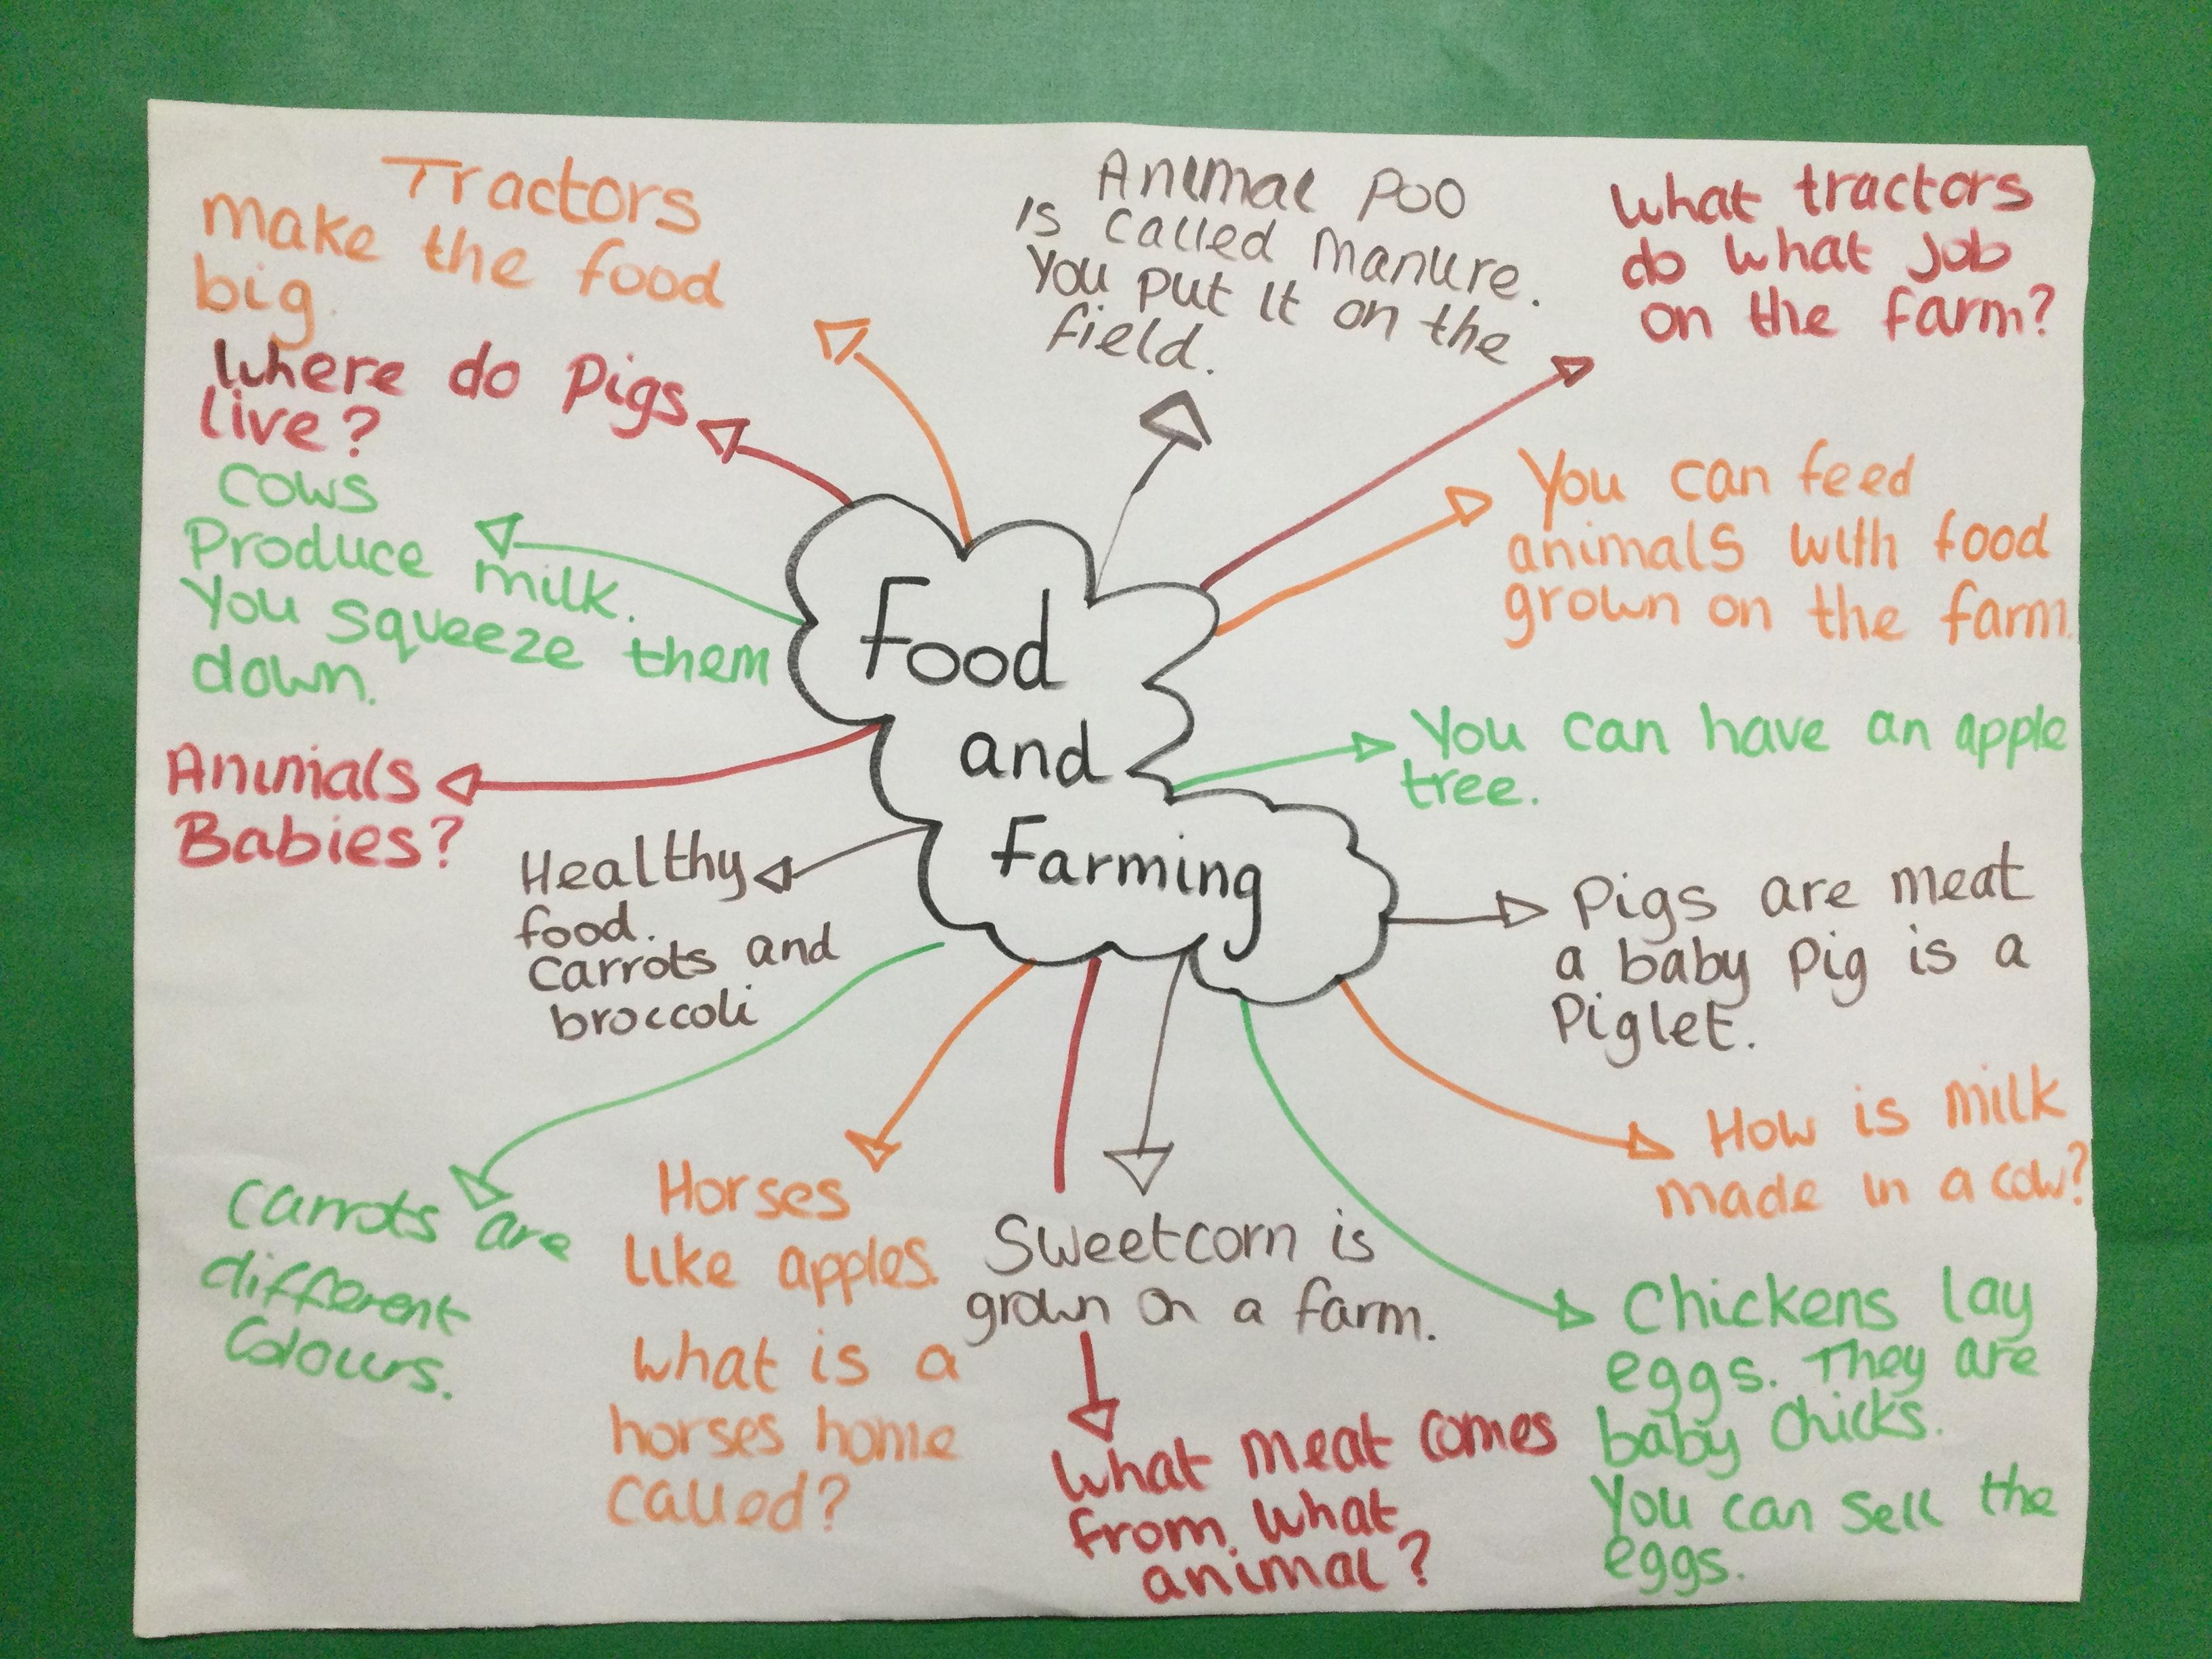 Food
and
Farming
Tractors
make the food
big.
Where do Pigs
live?
Cows
Produce milk.
You squeeze them
down.
Animals
Babies?
Healthy
food.
Carrots and
broccoli
Carrots are
different
Colours.
Horses
like apples.
What is a
horses home
called?
Sweetcorn is
grown on a farm.
What meat comes
from what
animal?
Chickens lay
eggs. They are
baby chicks.
You can sell the
eggs.
How is milk
made in a cow?
Pigs are meat
a baby pig is a
Piglet.
You can have an apple
tree.
You can feed
animals with food
grown on the farm.
What tractors
do what job
on the farm?
Animal poo
is called manure.
You put it on the
field.